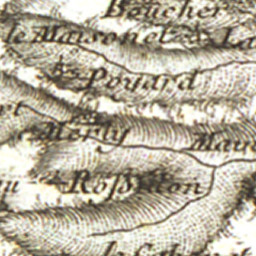 Boucher
le Maisonet La
Poyard
et
Merly Mau
Rossillon